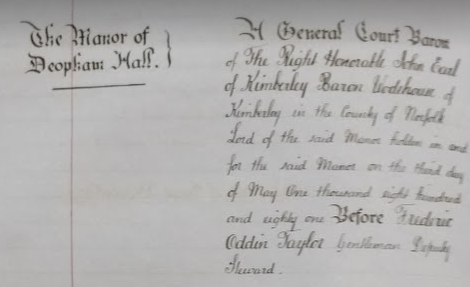 The Manor of
Deopham Hall.
A General Court Baron
of The Right Honorable John Earl
of Kimberley Baron Wodehouse of
Kimberley in the County of Norfolk
Lord of the said Manor holden in and
for the said Manor on the third day
of May One thousand eight hundred
and eighty one Before Frederic
Oddin Taylor Gentleman Deputy
Steward.